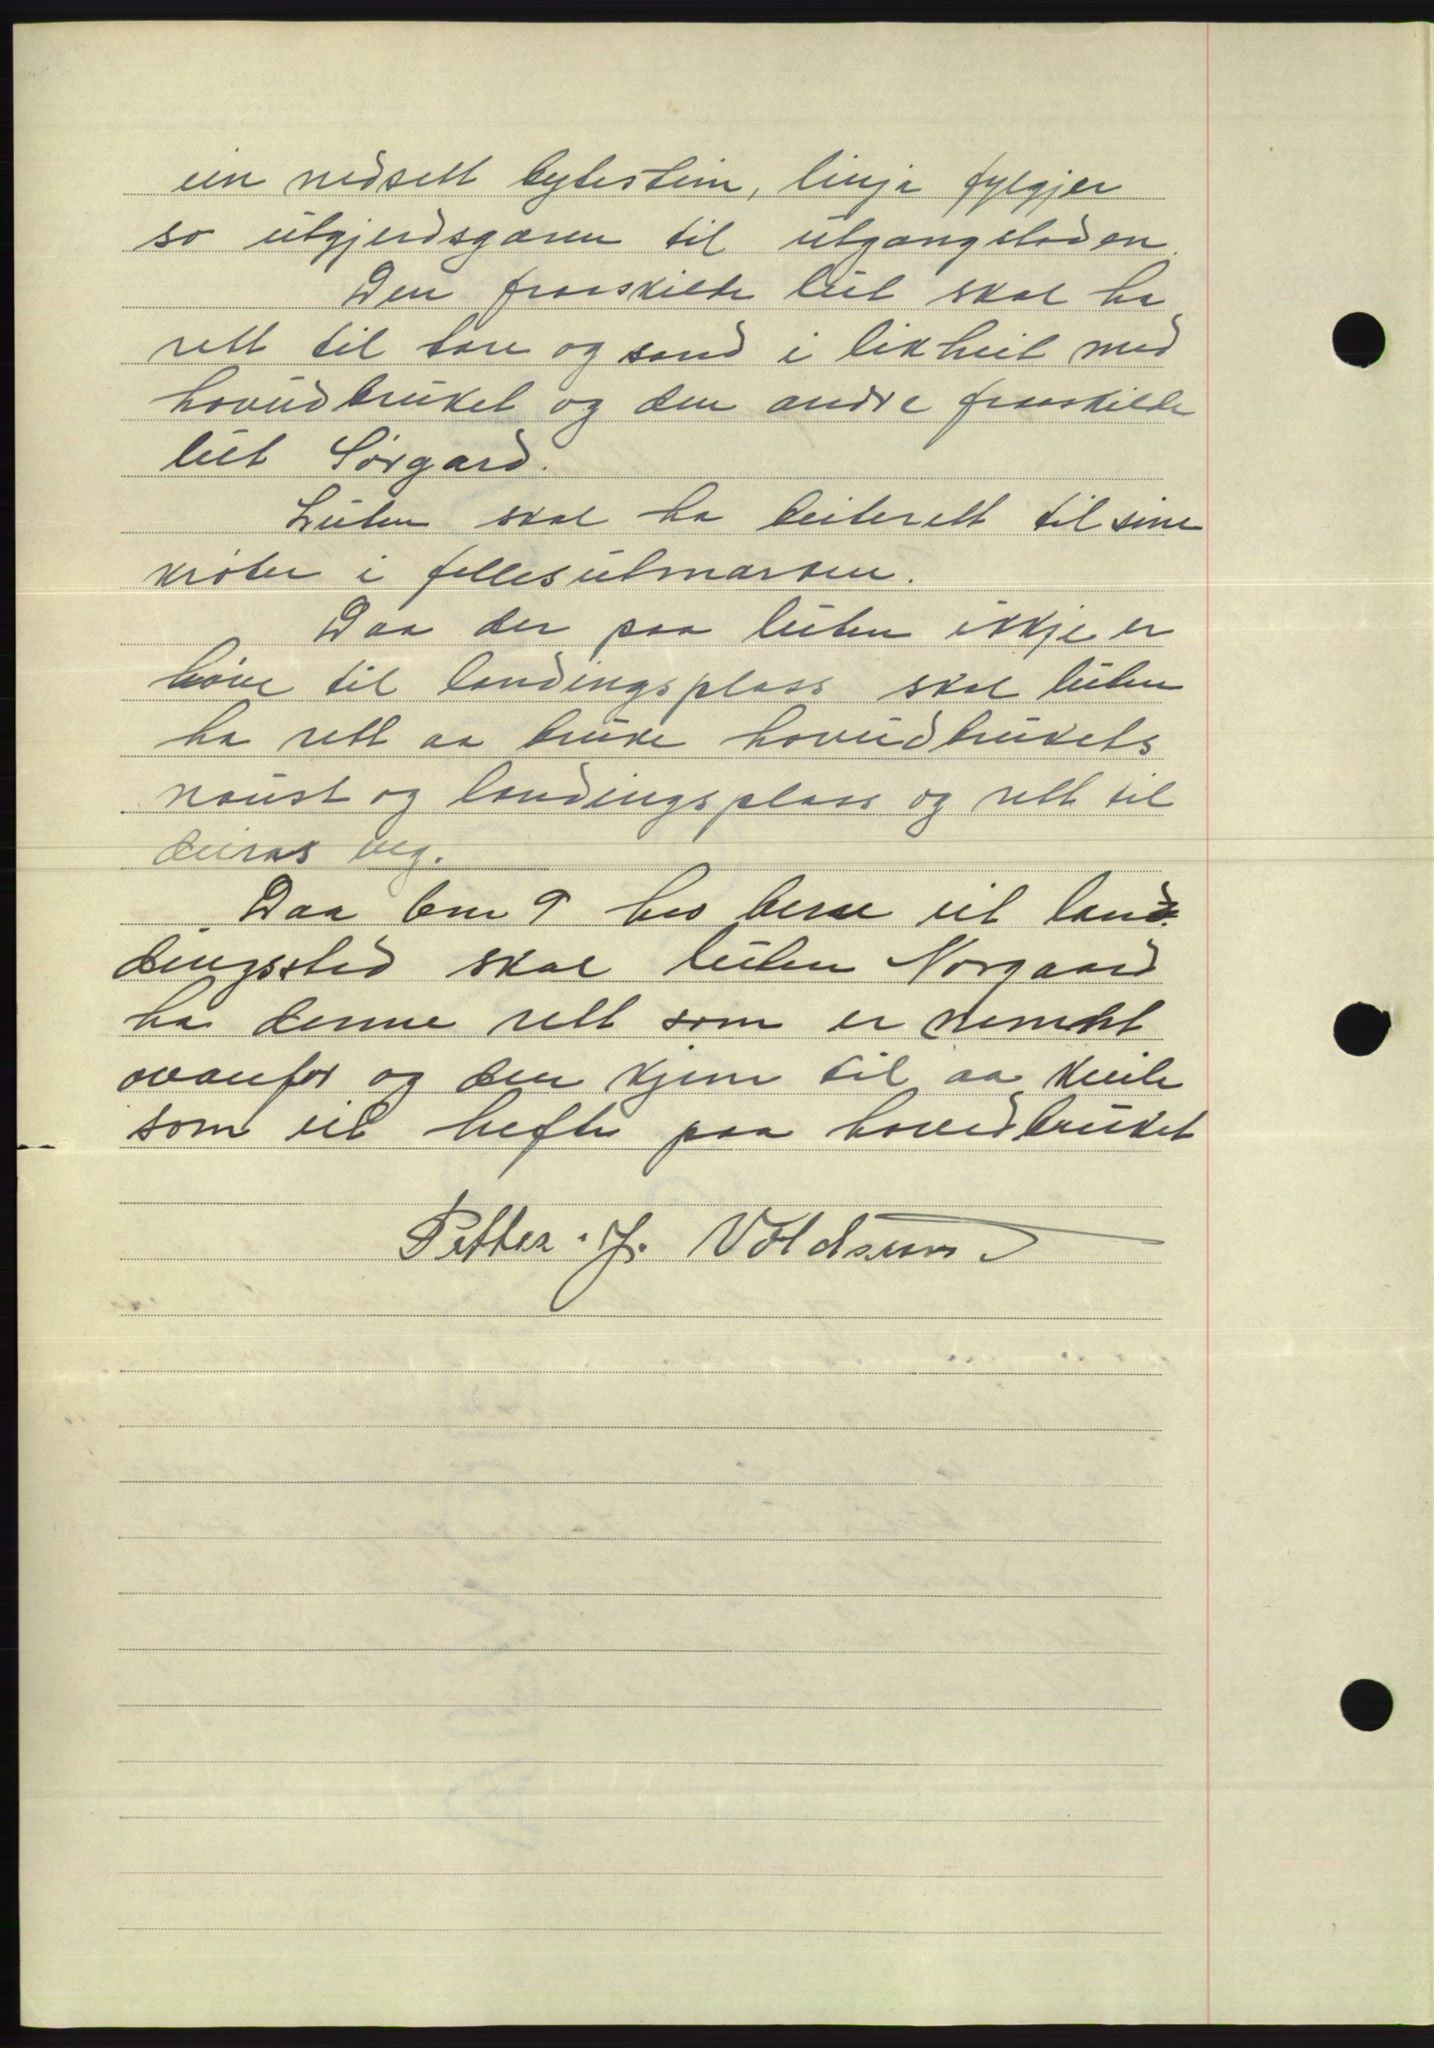 ein nedsett bytestein, linja fylgjer
so utgjerdsgaren til utgangsloden.
Den fraaskilde lut skal ha
rett til tare og sand i likheit med
hovudbruket og den andre fraaskilde
lut Sørgard.
Luten skal ha beiterett til sine
krøter i fellesutmarken.
Daa der paa luten ikkje er
høve til landingsplass skal luten
ha rett aa bruke hovudbrukets
naust og landingsplass og rett til
deiras veg.
Daa bm 9 hev berre eit land-
dingssted skal luten Norgaard
ha denne rett som er nemnt
ovanfor og den kjem til aa kvile
som eit hefte paa hovedbruket
Petter. J. Voldsund